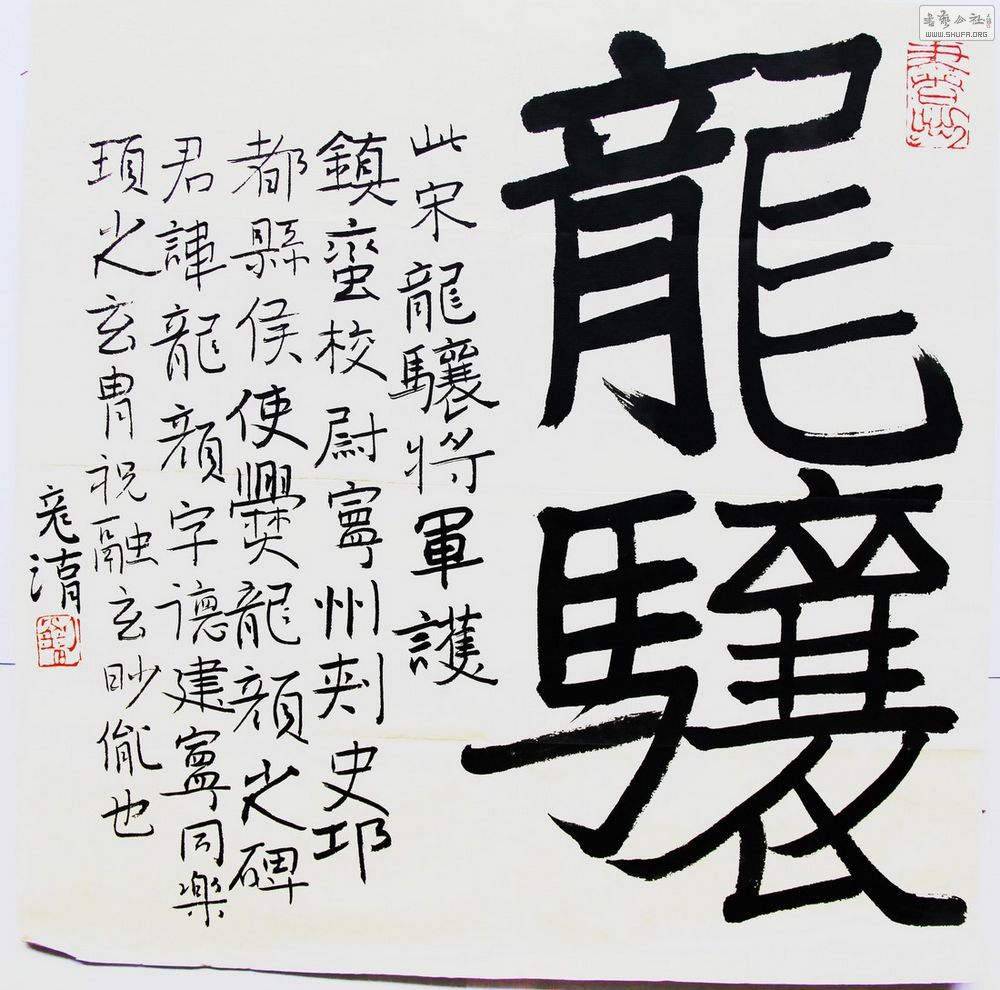 龍驤
此宋龍驤將軍護
鎮蛮校尉寧州刾史邛
都縣侯使爨龍顏之碑
君諱龍顏字德建寧同楽
頊之玄胄祝融玄眇胤也
劉
書藝公社
WWW.SHUFA.ORG